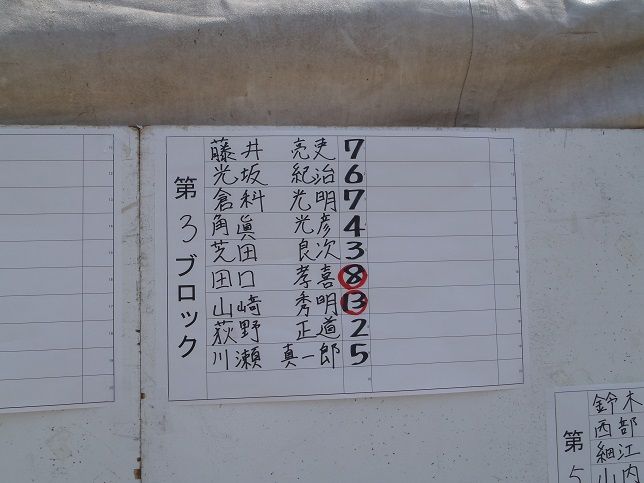 第3ブロック
藤井 亮吏 7
光坂 紀治 6
倉科 光明 7
角眞 光彦 4
芝田 良次 3
田口 孝喜 8
山崎 秀明 13
荻野 正道 2
川瀬 真一郎 5
第5
鈴木
西部
細江
山内